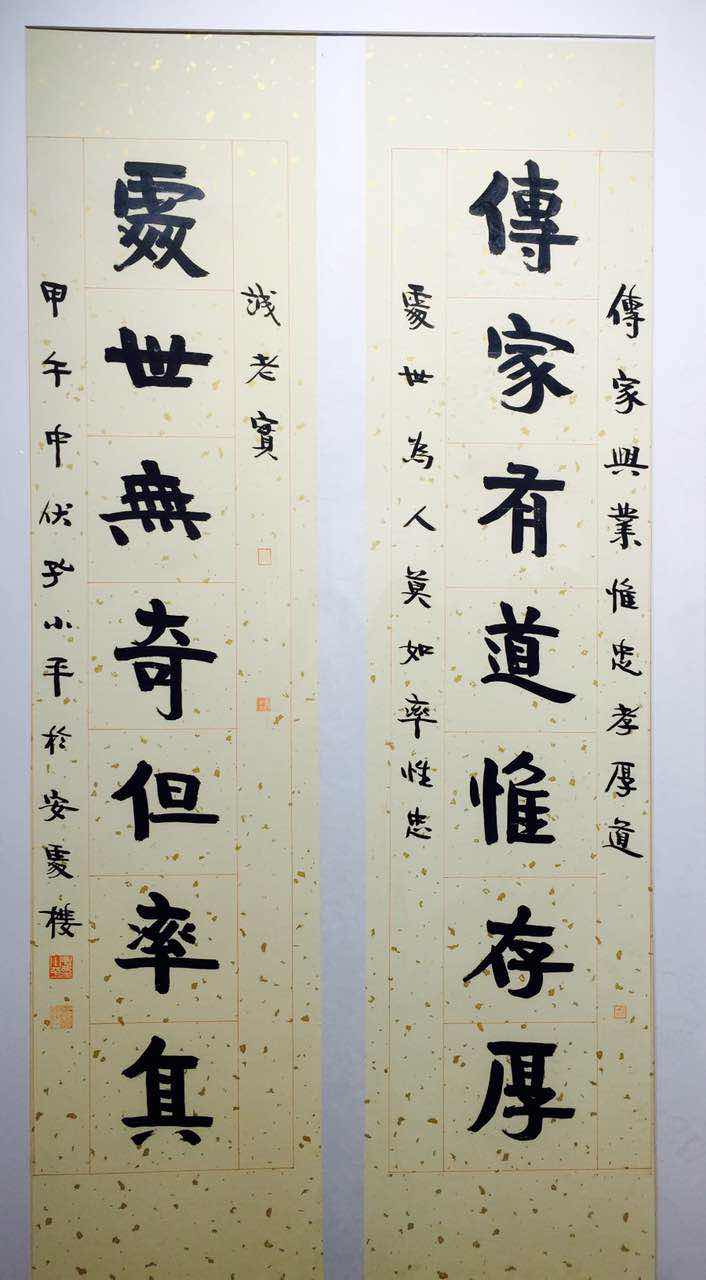 傳家興業惟忠孝厚道
傳家有道惟存厚
處世為人莫如率性忠
誠老實
處世無奇但率真
甲午中伏孔小平於安處樓